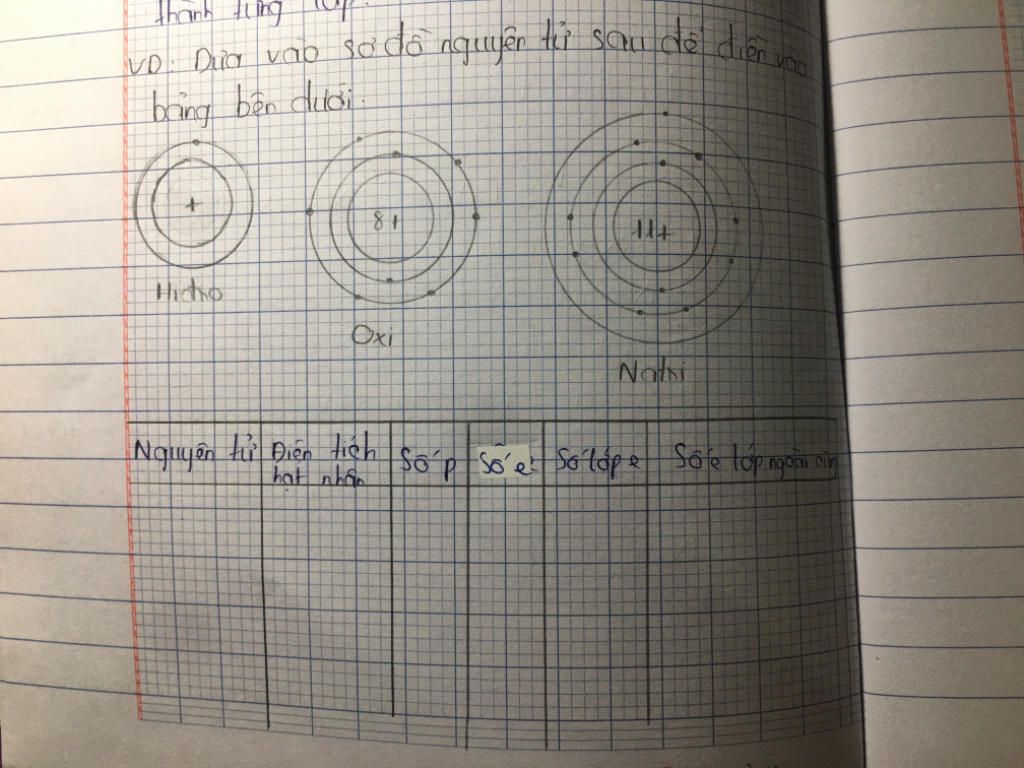 thành từng lớp.
VD: Dựa vào sơ đồ nguyên tử sau để điền vào
bảng bên dưới:
+
8+
11+
Hidro
Oxi
Natri
Nguyên tử Điện tích hạt nhân Số p Số e Số lớp e Số e lớp ngoài cùng